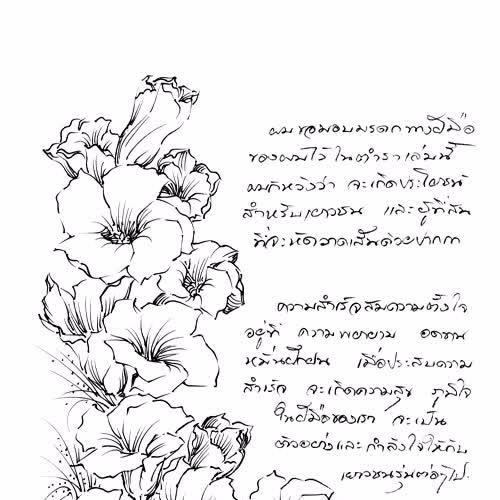 ผมขอมอบมรดกทางฝีมือ
ของผมไว้ ในตำราเล่มนี้
ผมหวังว่า จะเกิดประโยชน์
สำหรับเยาวชน และผู้ที่สน
ที่จะหัดวาดเส้นด้วยปากกา
ความสำเร็จสมความตั้งใจ
อยู่ที่ ความพยายาม อดทน
หมั่นฝึกฝน เมื่อประสบความ
สำเร็จ จะเกิดความสุข ภูมิใจ
ในฝีมือของเรา จะเป็น
ตัวอย่างและกำลังใจให้กับ
เยาวชนรุ่นต่อๆไป.